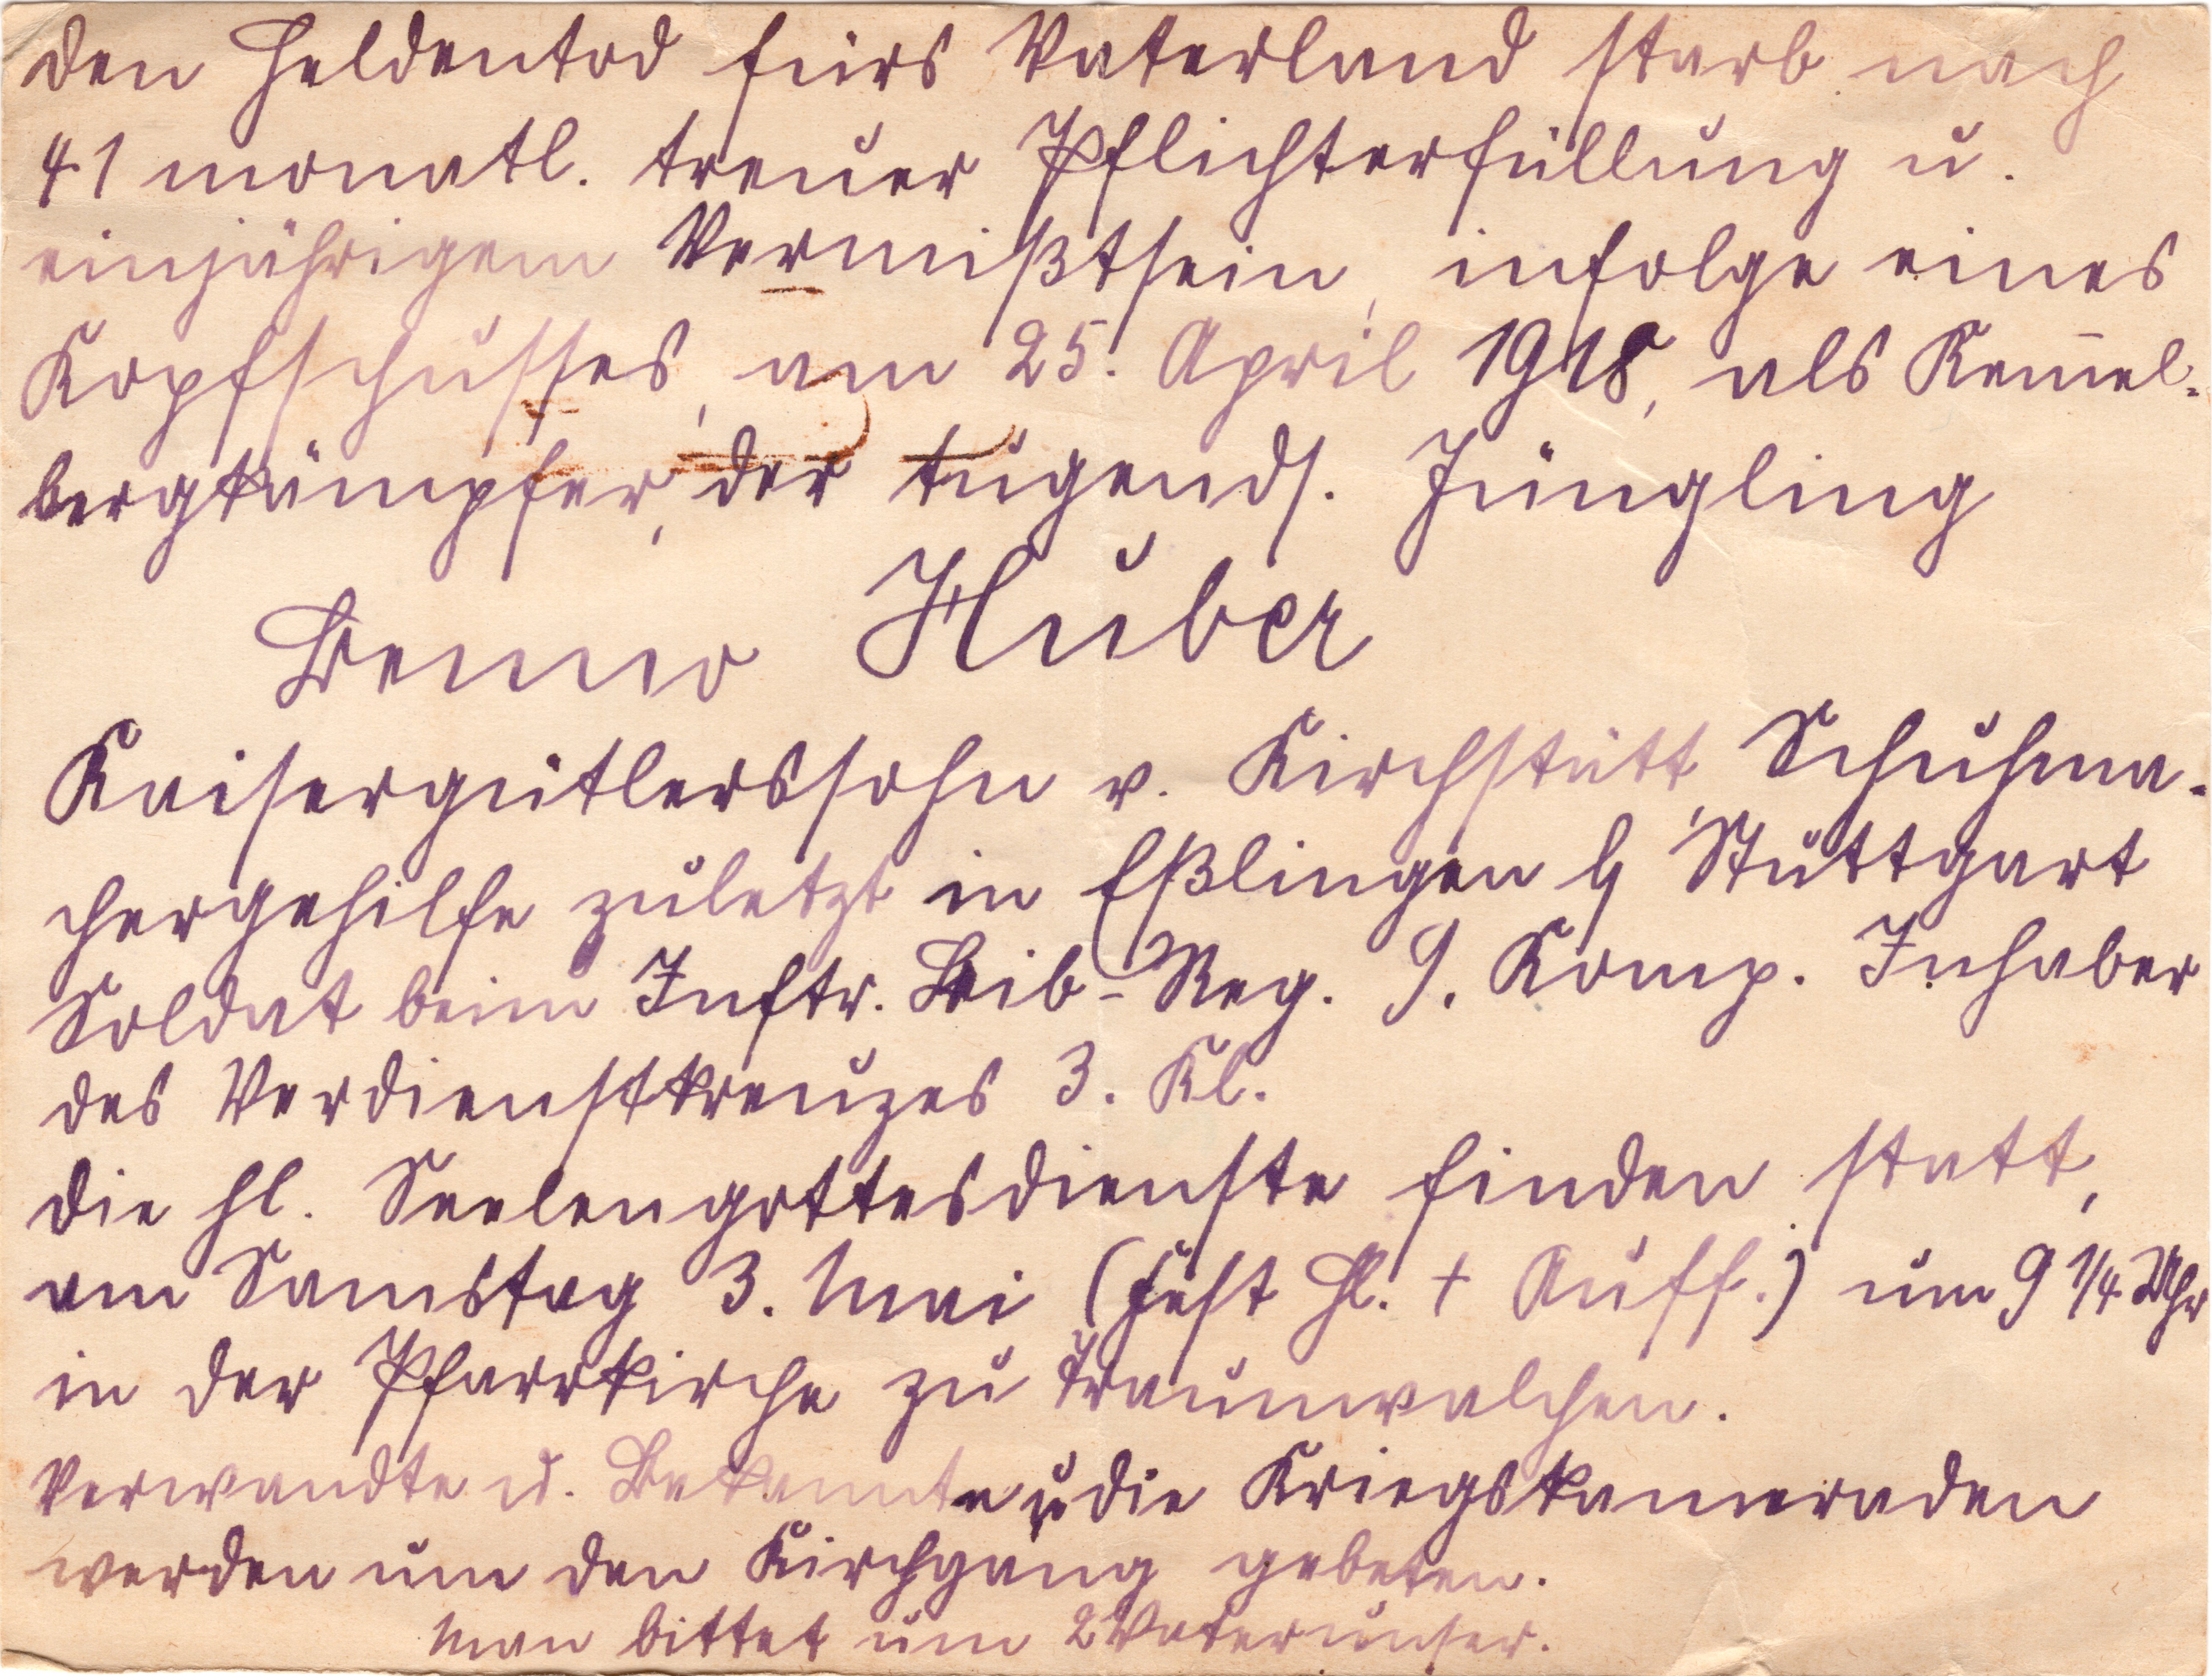 Den Heldentod fürs Vaterland starb nach
41 monatl. treuer Pflichterfüllung u.
einjährigem Vermißtsein, infolge eines
Kopfschusses, am 25. April 1918, als Kem̄el-
bergkämpfer, der tugends. Jüngling
Benno Huber
Kaisergütlerssohn v. Kirchstätt, Schuhma-
chergehilfe zuletzt in Eßlingen b/ Stuttgart
Soldat beim Inftr. Leib-Reg. 9. Komp. Inhaber
des Verdienstkreuzes 3. Kl.
Die hl. Seelengottesdienste finden statt,
am Samstag 3. Mai (Fest hl. + Auff.) um 9 1/4 Uhr
in der Pfarrkirche zu Traunwalchen.
Verwandte u. Bekannte u. die Kriegskameraden
werden um den Kirchgang gebeten.
Man bittet um 2 Vaterunser.